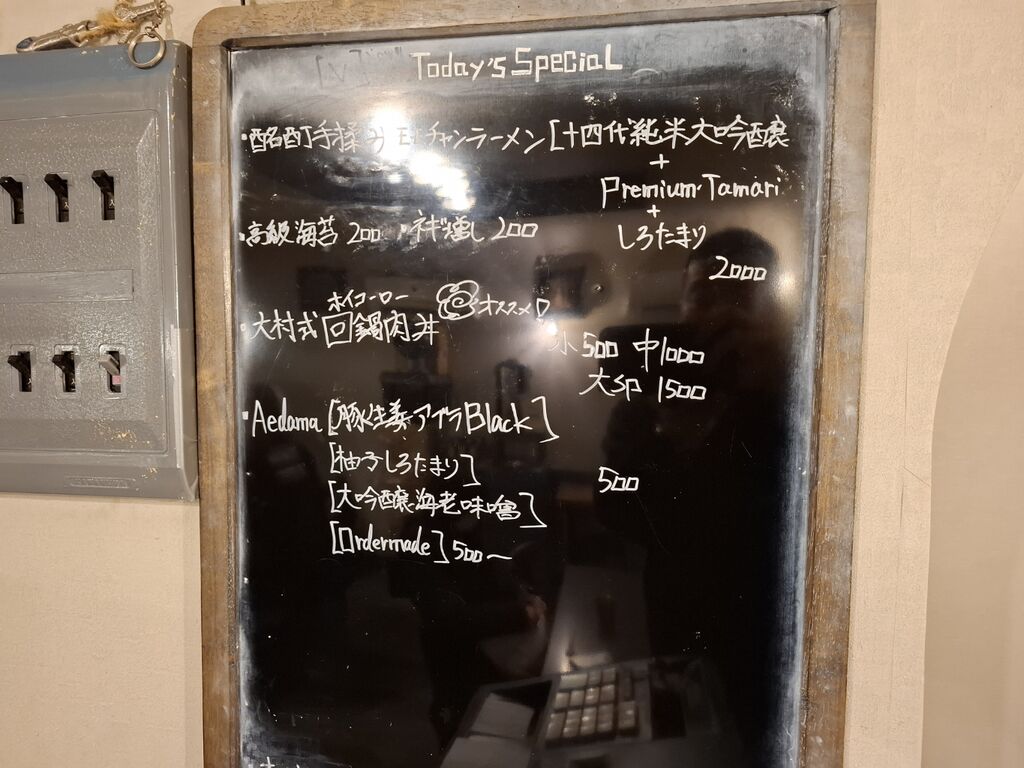 Today's Special
・酩酊手揉みモリチャンラーメン[十四代純米大吟醸
+
Premium Tamari
+
しろたまり
2000
・高級海苔 200 ・ネギ増し 200
ホイコーロー
・大村式回鍋肉丼 オススメ!
小500 中1000
大SP 1500
・Aedama[豚生姜アブラBlack]
[柚子しろたまり]
[大吟醸海老味噌]
500
[Ordermade]500~